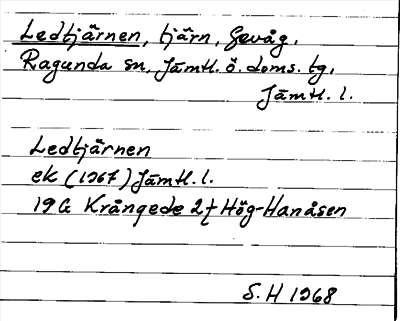 Ledtjärnen, tjärn, Gevåg.
Ragunda sn, Jämtl. ö. doms. tg,
Jämtl. l.
Ledtjärnen
ek (1967) Jämtl. l.
19G Krångede 2f Hög-Hanåsen
S. H 1968